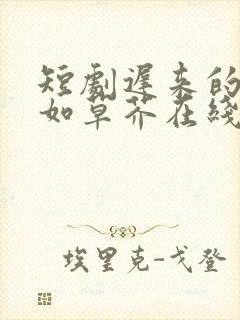 短劇遲来的
如草芥在綫
埃里克-戈登